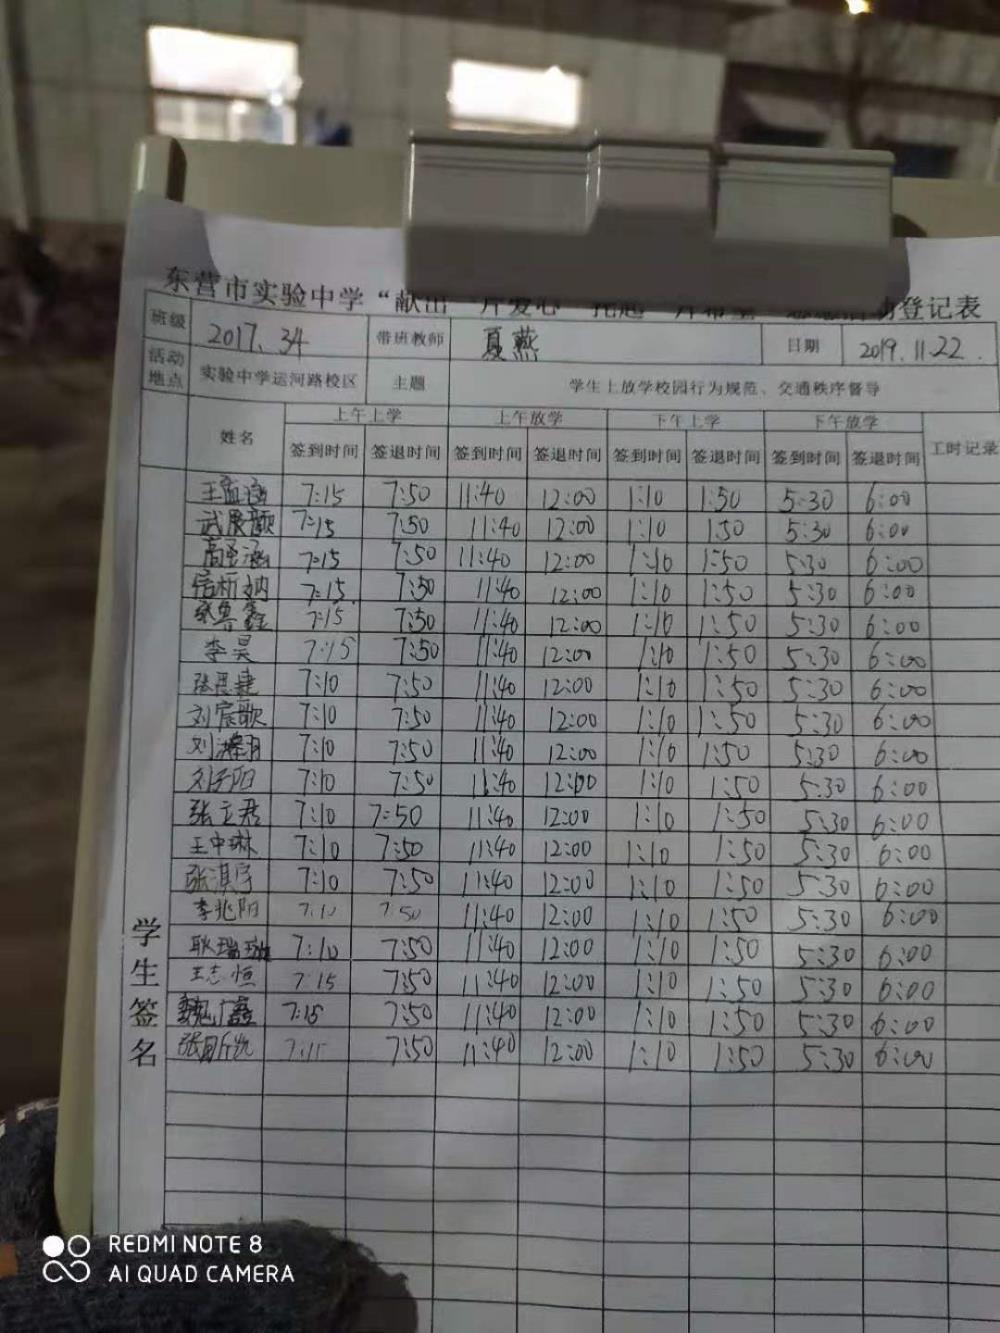 东营市实验中学“献出一片爱心 托起一片希望 登记表
班级 2017.34 带班教师 夏燕 日期 2019.11.22.
活动地点 实验中学运河路校区 主题 学生上放学校园行为规范、交通秩序督导
姓名 上午上学 上午放学 下午上学 下午放学 工时记录
签到时间 签退时间 签到时间 签退时间 签到时间 签退时间 签到时间 签退时间
学生签名
王 7:15 7:50 11:40 12:00 1:10 1:50 5:30 6:00
武晨颢 7:15 7:50 11:40 12:00 1:10 1:50 5:30 6:00
高圣涵 7:15 7:50 11:40 12:00 1:10 1:50 5:30 6:00
7:15 7:50 11:40 12:00 1:10 1:50 5:30 6:00
张鲁鑫 7:15 7:50 11:40 12:00 1:10 1:50 5:30 6:00
李昊 7:15 7:50 11:40 12:00 1:10 1:50 5:30 6:00
张恩捷 7:10 7:50 11:40 12:00 1:10 1:50 5:30 6:00
刘宸歌 7:10 7:50 11:40 12:00 1:10 1:50 5:30 6:00
刘 7:10 7:50 11:40 12:00 1:10 1:50 5:30 6:00
刘子阳 7:10 7:50 11:40 12:00 1:10 1:50 5:30 6:00
张立君 7:10 7:50 11:40 12:00 1:10 1:50 5:30 6:00
王中琳 7:10 7:50 11:40 12:00 1:10 1:50 5:30 6:00
张淇宇 7:10 7:50 11:40 12:00 1:10 1:50 5:30 6:00
李兆阳 7:10 7:50 11:40 12:00 1:10 1:50 5:30 6:00
耿瑞璇 7:10 7:50 11:40 12:00 1:10 1:50 5:30 6:00
王志恒 7:15 7:50 11:40 12:00 1:10 1:50 5:30 6:00
魏广鑫 7:15 7:50 11:40 12:00 1:10 1:50 5:30 6:00
张 凯 7:15 7:50 11:40 12:00 1:10 1:50 5:30 6:00
REDMI NOTE 8
AI QUAD CAMERA